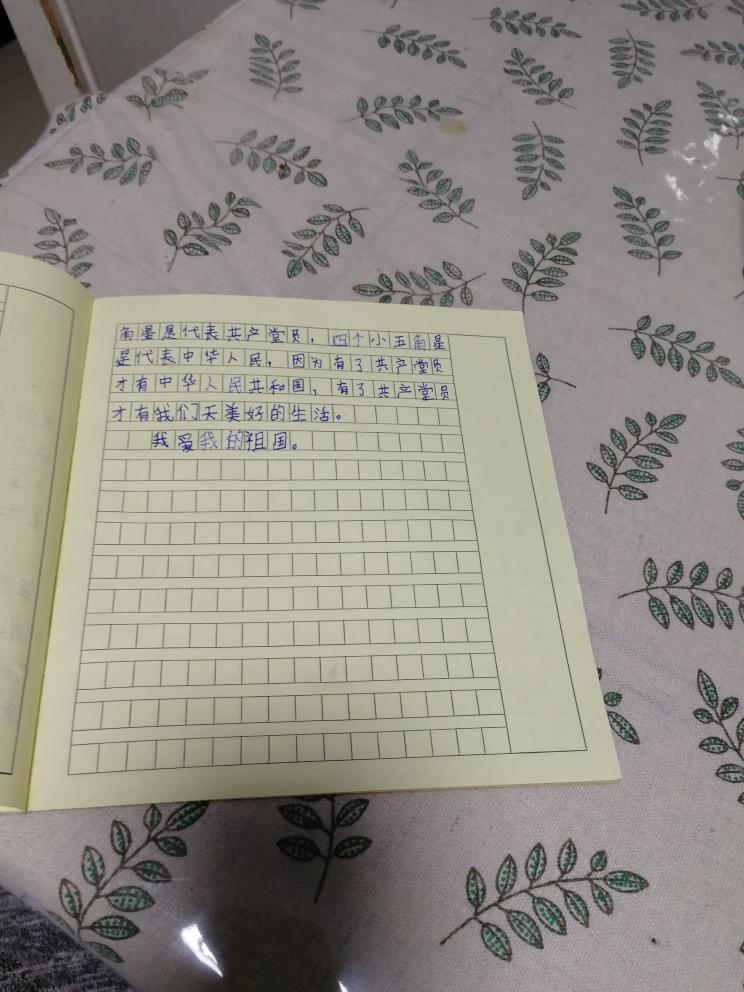 角星是代表共产党员，四个小五角星
是代表中华人民，因为有了共产党员
才有中华人民共和国，有了共产党员
才有我们天美好的生活。
我爱我的祖国。